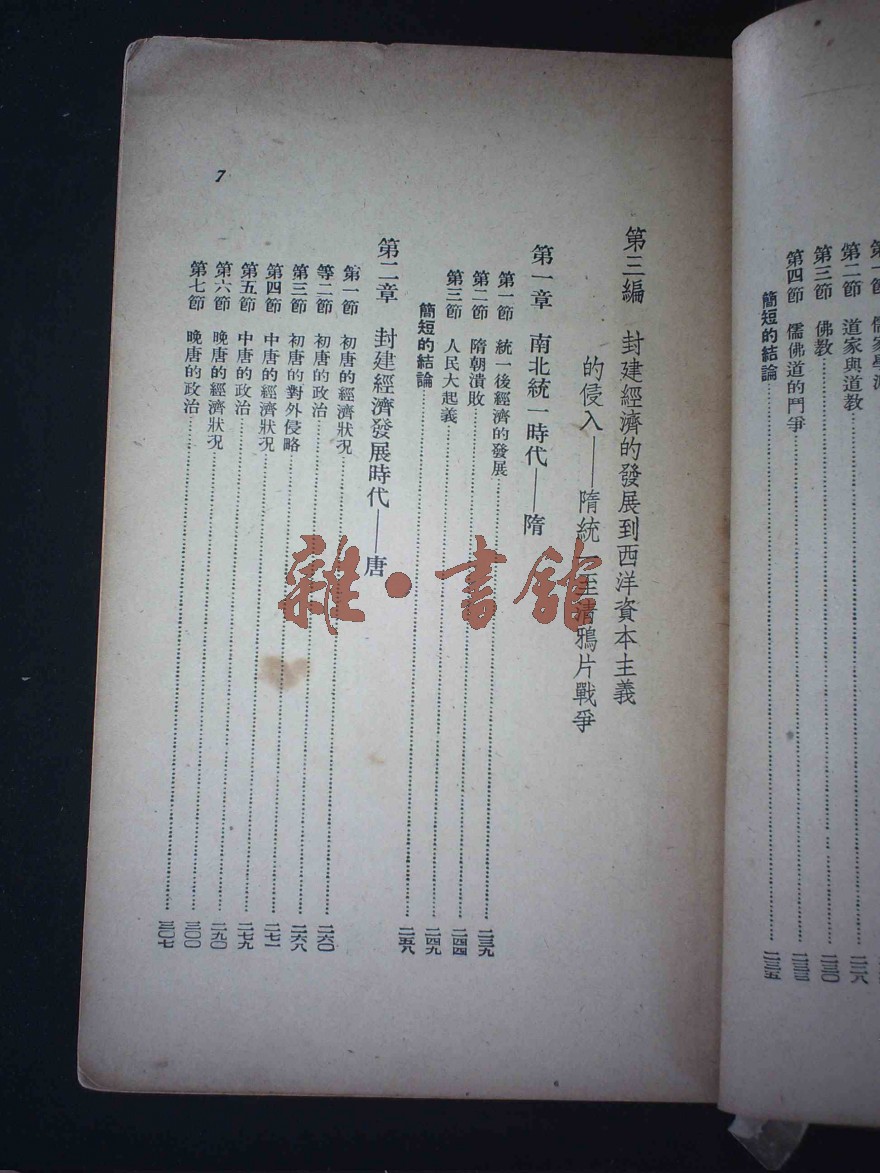 第二節 道家與道教……二二八
第三節 佛教……二三〇
第四節 儒佛道的鬥爭……二三三
簡短的結論……二三五
第三編 封建經濟的發展到西洋資本主義
的侵入——隋統一至清鴉片戰爭
第一章 南北統一時代——隋
第一節 統一後經濟的發展……二三九
第二節 隋朝潰敗……二四四
第三節 人民大起義……二四九
簡短的結論……二五八
第二章 封建經濟發展時代——唐
第一節 初唐的經濟狀況……二六〇
等二節 初唐的政治……二六八
第三節 初唐的對外侵略……二七一
第四節 中唐的經濟狀況……二七九
第五節 中唐的政治……二九〇
第六節 晚唐的經濟狀況……三〇〇
第七節 晚唐的政治……三〇七
7
雜·書館